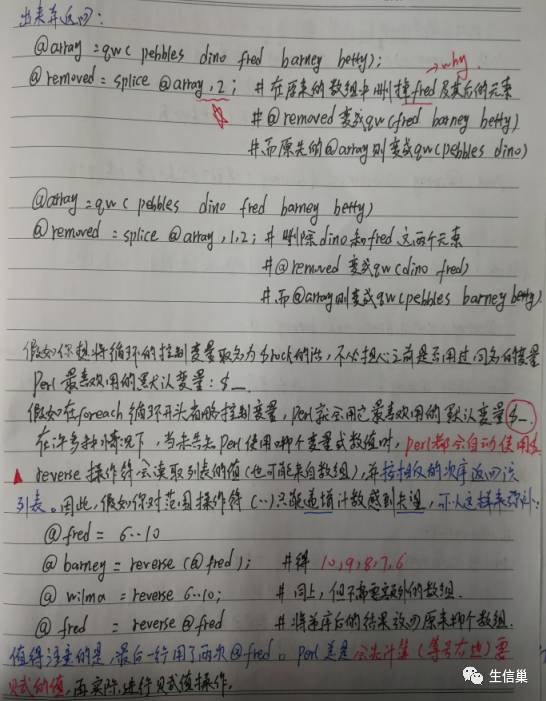 出来并返回:
@array = qw( pebbles dino fred barney betty);
→why
@removed = splice @array, 2; #在原来的数组中删掉fred及其后的元素
#@removed 变成qw(fred barney betty)
#而原先的@array则变成qw(pebbles dino)
@array = qw( pebbles dino fred barney betty)
@removed = splice @array, 1, 2; #删除dino和fred这两个元素
#@removed 变成qw(dino fred)
#而@array则变成qw(pebbles barney betty)
假如你想将循环的控制变量取名为$rock的话,不必担心之前是否用过同名的变量
Perl 最喜欢用的默认变量:$_
假如在foreach循环开头省略控制变量,Perl就会用它最喜欢用的默认变量$_
在许多种情况下,当未告知Perl使用哪个变量或数值时,Perl都会自动使用$_
▲ reverse 操作符会读取列表的值(也可能来自数组),并按相反的次序返回该
列表。因此,假如你对范围操作符(..)只能递增计数感到失望,可以这样来弥补:
@fred = 6..10
@barney = reverse (@fred); #得 10,9,8,7,6
@wilma = reverse 6..10; #同上,但不需要额外的数组.
@fred = reverse @fred #将逆序后的结果放回原来那个数组.
值得注意的是,最后一行用了两次@fred。Perl总是会先计算(等号右边)要
赋的值,再实际进行赋值操作.
生信巢